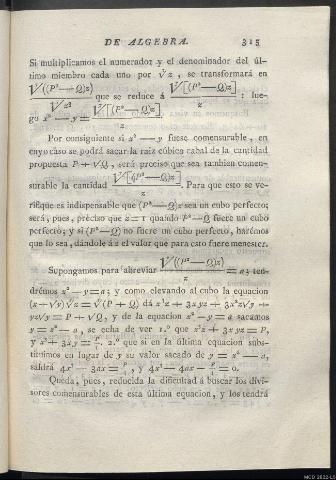 DE ALGEBRA. 315
Si multiplicamos el numerador y el denominador del úl-
timo miembro cada uno por ∛z, se transformará en
∛((P²—Q)z) / ∛z³ que se reduce á ∛[(P²—Q)z] / z : lue-
go x²—y = ∛[(P²—Q)z] / z.
Por consiguiente si x²—y fuese comensurable, en
cuyo caso se podrá sacar la raiz cúbica cabal de la cantidad
propuesta P+√Q, será preciso que sea tambien comen-
surable la cantidad ∛[(P²—Q)z] / z. Para que esto se ve-
rifique es indispensable que (P²—Q)z sea un cubo perfecto;
será, pues, preciso que z=1 quando P²—Q fuere un cubo
perfecto; y si (P²—Q) no fuere un cubo perfecto, harémos
que lo sea, dándole á z el valor que para esto fuere menester.
Supongamos para abreviar ∛((P²—Q)z) / z = a; ten-
drémos x²—y=a; y como elevando al cubo la equacion
(x+√y)∛z=∛(P+Q) dá x³z+3xyz+3x²z√y+
yz√y=P+√Q, y de la equacion x²—y=a sacamos
y=x²—a, se echa de ver 1.º que x³z+3xyz=P,
y x³+3xy=P/z. 2.º que si en la última equacion subs-
tituimos en lugar de y su valor sacado de y=x²—a,
saldrá 4x³—3ax=P/z, y 4x³—4ax—P/z=0.
Queda, pues, reducida la dificultad á buscar los divi-
sores comensurables de esta última equacion, y los tendrá